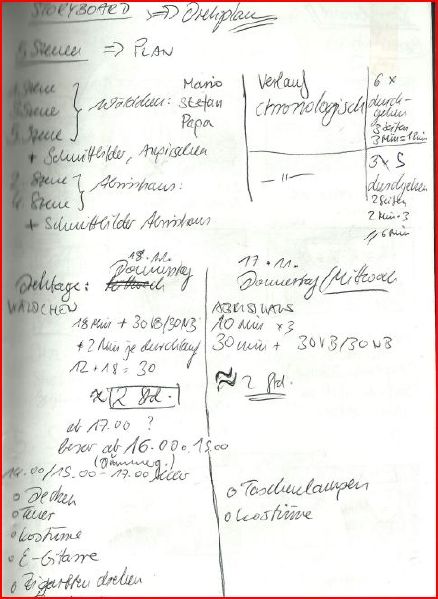 STORYBOARD => Drehplan
5 Szenen => PLAN
1. Szene
3. Szene
5. Szene
Wäldchen: Mario
Stefan
Papa
Verlauf
chronologisch
6 x
durch-
gehen
3 Seiten
3 Min = 18 Min
+ Schnittbilder, Anpirschen
2. Szene
4. Szene
Abrisshaus:
— " —
3 x S
durchgehen
2 Seiten
2 Min · 3
6 Min
+ Schnittbilder Abrisshaus
18. 11.
Drehtage: Donnerstag
WÄLDCHEN
18 Min + 30 VB/30 NB
+ 2 Min je durchlauf
12 + 18 = 30
≈ 2 Std.
ab 17.00 ?
besser ab 16.00 o. 15.00
(Dämmerg.)
14.00/15.00 - 17.00
o Decken
o Feuer
o Kostüme
o E-Gitarre
o Zigaretten drehen
17. 11.
Donnerstag/Mittwoch
ABRISSHAUS
10 min x 3
30 min + 30 VB/30 NB
≈ 2 Std.
o Taschenlampen
o Kostüme